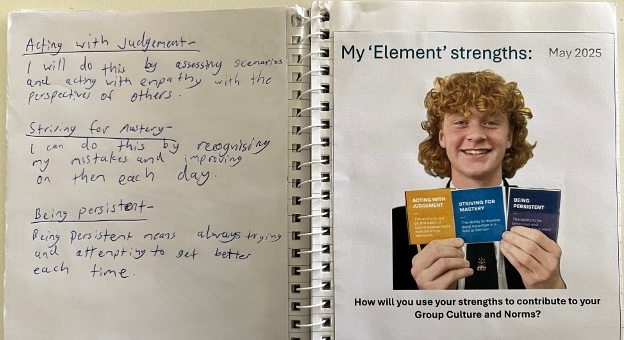 Acting with Judgement-
I will do this by assessing scenarios
and acting with empathy with the
perspectives of others.
Striving for Mastery-
I can do this by recognising
my mistakes and improving
on then each day.
Being persistent-
Being persistent means always trying
and attempting to get better
each time.
My ‘Element’ strengths: May 2025
ACTING WITH
JUDGEMENT
STRIVING FOR
MASTERY
BEING
PERSISTENT
How will you use your strengths to contribute to your
Group Culture and Norms?